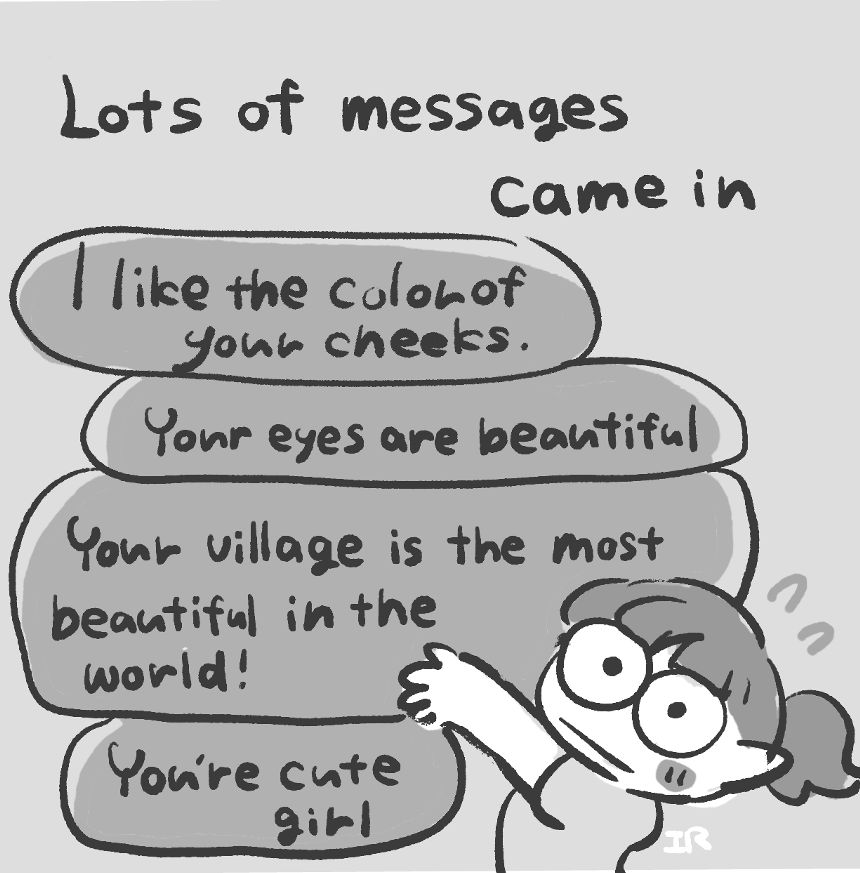 Lots of messages
came in
I like the color of
your cheeks.
Your eyes are beautiful
Your village is the most
beautiful in the
world!
You're cute
girl
IR